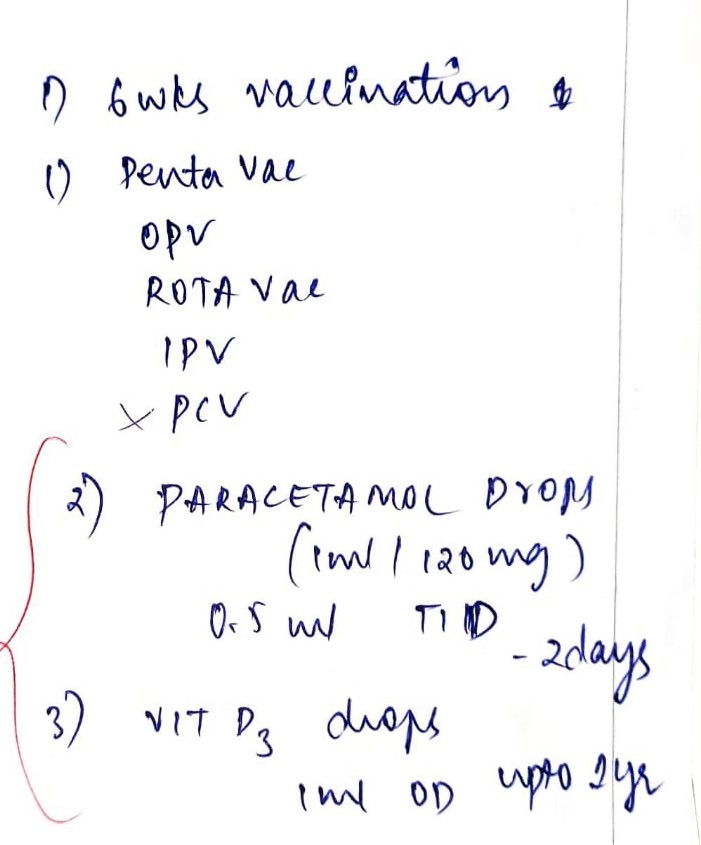 1) 6 wks vaccination
1) Penta Vac
OPV
ROTA Vac
IPV
x PCV
2) PARACETAMOL Drops
(1ml / 120 mg)
0.5 ml TID
- 2days
3) VIT D3 drops
1 ml OD upto 1 yr